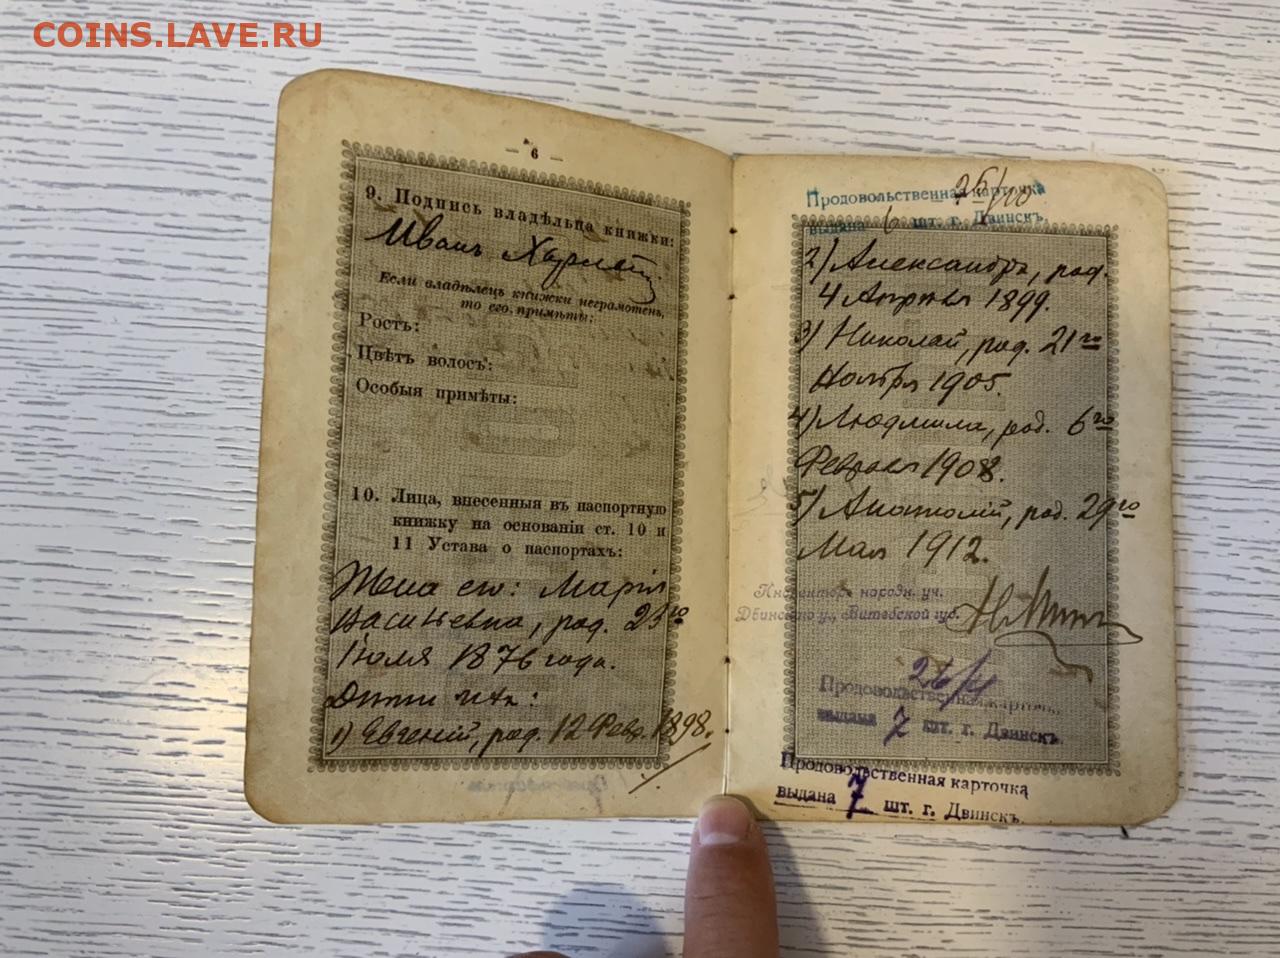 COINS.LAVE.RU
— 6 —
9. Подпись владѣльца книжки:
Иванъ
Если владѣлецъ книжки неграмотенъ,
то его примѣты:
Ростъ:
Цвѣтъ волосъ:
Особыя примѣты:
10. Лица, внесенныя въ паспортную
книжку на основаніи ст. 10 и
11 Устава о паспортахъ:
Жена его: Марія
Васильевна, род. 23го
Іюля 1876 года.
Дѣти ихъ:
1) Евгеній, род. 12 Февр. 1898.
Продовольственная карточка
выдана 6 шт. г. Двинскъ.
2) Александра, род.
4 Апрѣля 1899.
3) Николай, род. 21го
Ноября 1905.
4) Людмила, род. 6го
Февраля 1908.
5) Анатолій, род. 29го
Мая 1912.
Инспекторъ народн. уч.
Двинскаго у., Витебской губ.
26/4
Продовольственная карточка
выдана 7 шт. г. Двинскъ.
Продовольственная карточка
выдана 7 шт. г. Двинскъ.